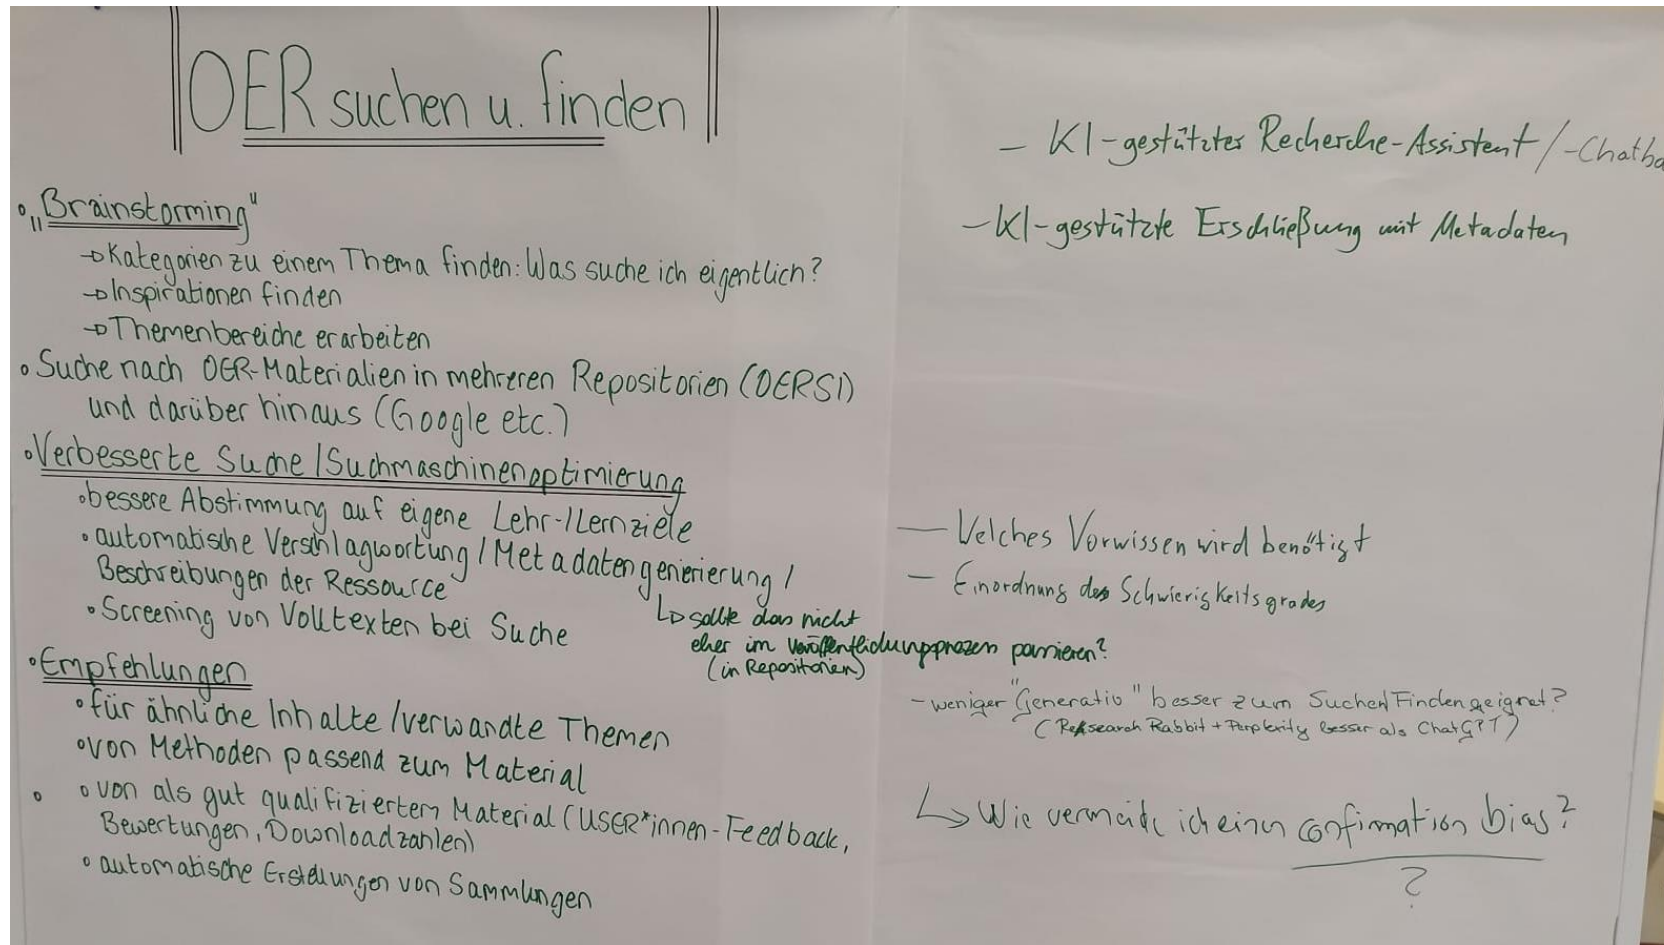 OER suchen u. finden
• „Brainstorming"
→ Kategorien zu einem Thema finden: Was suche ich eigentlich?
→ Inspirationen finden
→ Themenbereiche erarbeiten
• Suche nach OER-Materialien in mehreren Repositorien (OERSI)
und darüber hinaus (Google etc.)
• Verbesserte Suche / Suchmaschinenoptimierung
• bessere Abstimmung auf eigene Lehr-/Lernziele
• automatische Verschlagwortung / Metadatengenerierung /
Beschreibungen der Ressource
↳ sollte das nicht
eher im Veröffentlichungsprozess passieren?
(in Repositorien)
• Screening von Volltexten bei Suche
• Empfehlungen
• für ähnliche Inhalte / verwandte Themen
• von Methoden passend zum Material
• von als gut qualifiziertem Material (USER*innen-Feedback,
Bewertungen, Downloadzahlen)
• automatische Erstellungen von Sammlungen
– KI-gestützter Recherche-Assistent / -Chatbo
– KI-gestützte Erschließung mit Metadaten
– Welches Vorwissen wird benötigt
– Einordnung des Schwierigkeitsgrades
– weniger "Generativ" besser zum Suchen/Finden geeignet?
(Research Rabbit + Perplexity besser als ChatGPT)
↳ Wie vermeide ich einen confirmation bias?
?